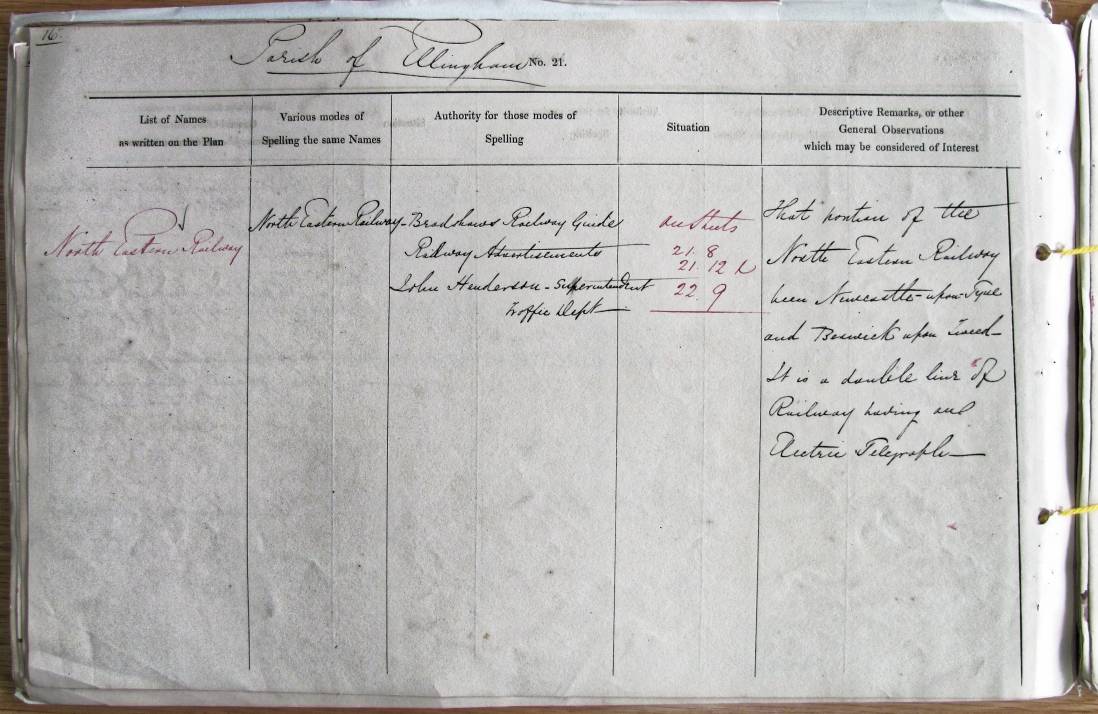 16.
Parish of Ellingham No. 21.
List of Names
as written on the Plan
Various modes of
Spelling the same Names
Authority for those modes of
Spelling
Situation
Descriptive Remarks, or other
General Observations
which may be considered of Interest
North Eastern Railway
North Eastern Railway
Bradshaws Railway Guide
Railway Advertisements
John Henderson - Superintendent
Traffic Dept
on Sheets
21. 8
21. 12
22. 9
That portion of the
North Eastern Railway
been Newcastle-upon-Tyne
and Berwick upon Tweed
It is a double line of
Railway having an
Electric Telegraph